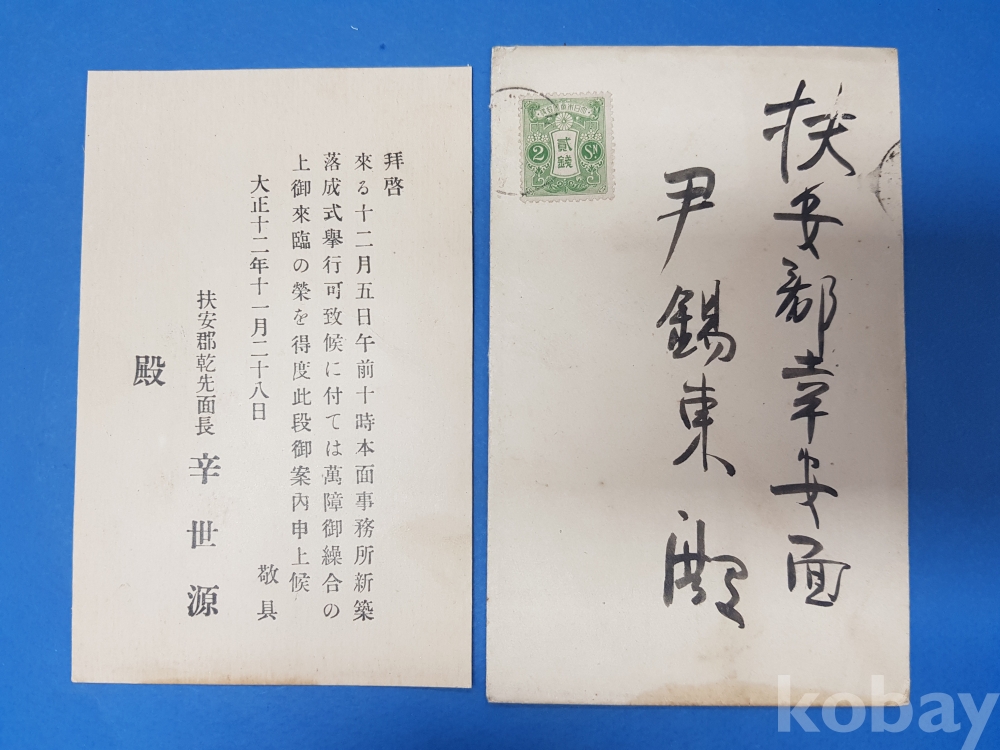 拜啓
來る十二月五日午前十時本面事務所新築
落成式擧行可致候に付ては萬障御繰合の
上御來臨の榮を得度此段御案內申上候
敬具
大正十二年十一月二十八日
扶安郡乾先面長 辛世源
殿
扶安郡幸安面
尹錫東 殿
貳錢
2 Sn
kobay